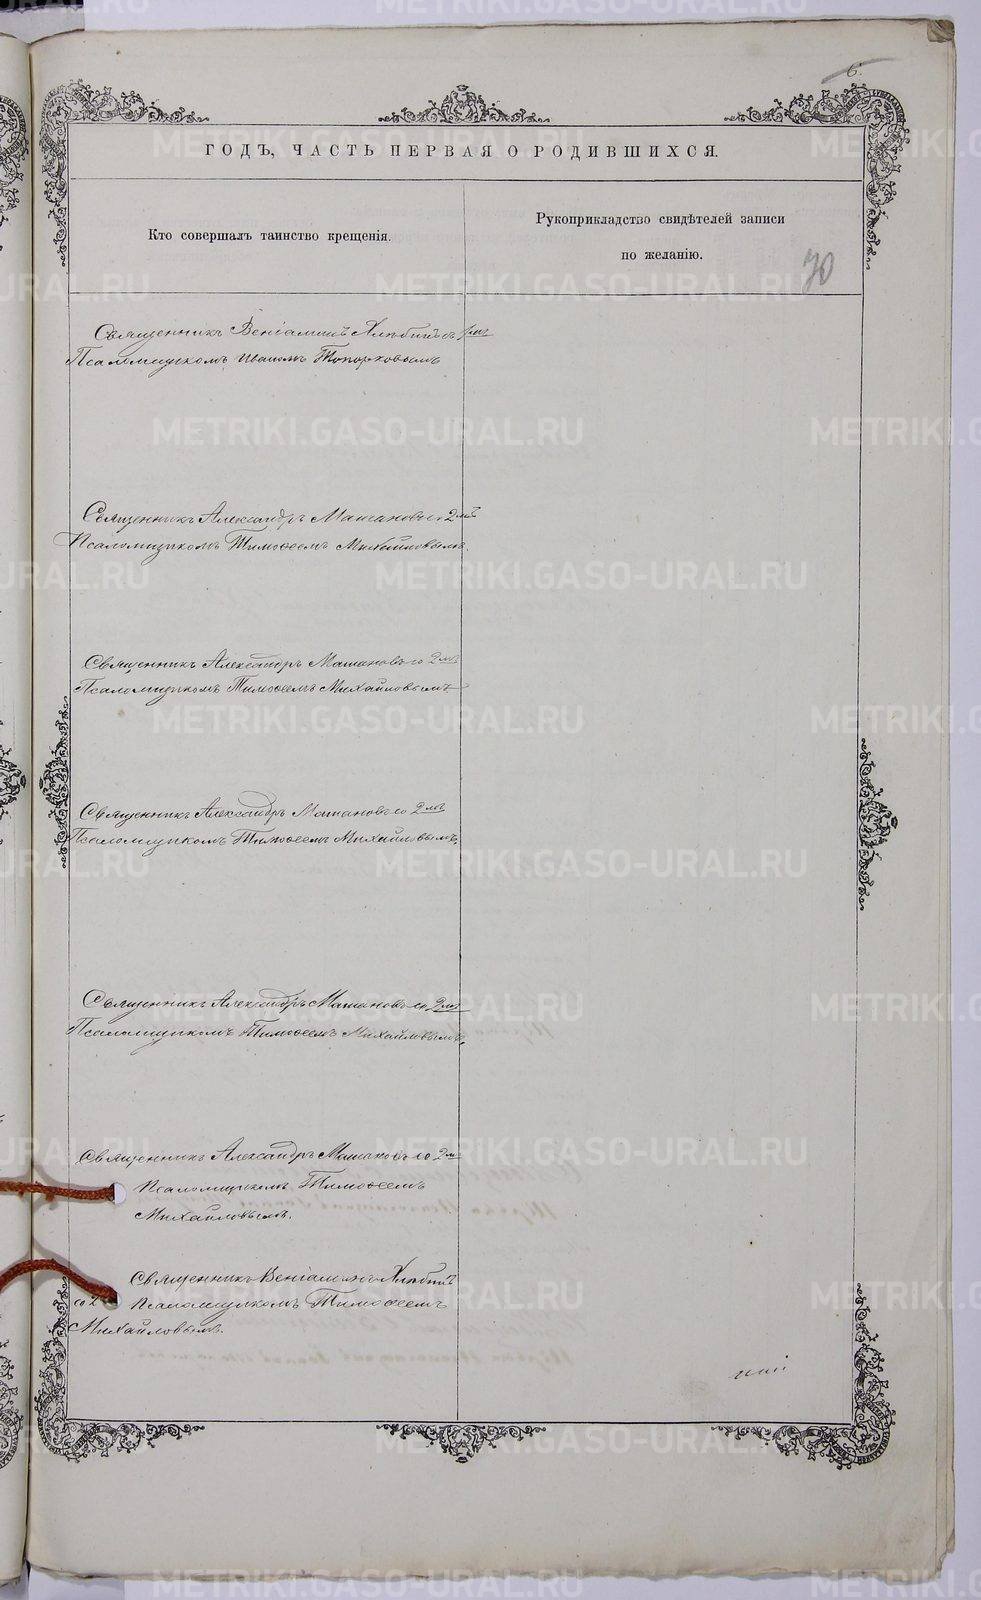 6.
ГОДЪ, ЧАСТЬ ПЕРВАЯ О РОДИВШИХСЯ.
Кто совершалъ таинство крещенія.
Рукоприкладство свидѣтелей записи
по желанію.
70
Священникъ Веніаминъ Хлѣбинъ съ 1мъ
Псаломщикомъ Иваномъ Топорковымъ
Священникъ Александръ Матановъ со 2мъ
Псаломщикомъ Тимоѳеемъ Михайловымъ.
Священникъ Александръ Матановъ со 2мъ
Псаломщикомъ Тимоѳеемъ Михайловымъ
Священникъ Александръ Матановъ со 2мъ
Псаломщикомъ Тимоѳеемъ Михайловымъ.
Священникъ Александръ Матановъ со 2мъ
Псаломщикомъ Тимоѳеемъ Михайловымъ.
Священникъ Александръ Матановъ со 2мъ
Псаломщикомъ Тимоѳеемъ
Михайловымъ.
Священникъ Веніаминъ Хлѣбинъ
со 2 Псаломщикомъ Тимоѳеемъ
Михайловымъ.
METRIKI.GASO-URAL.RU